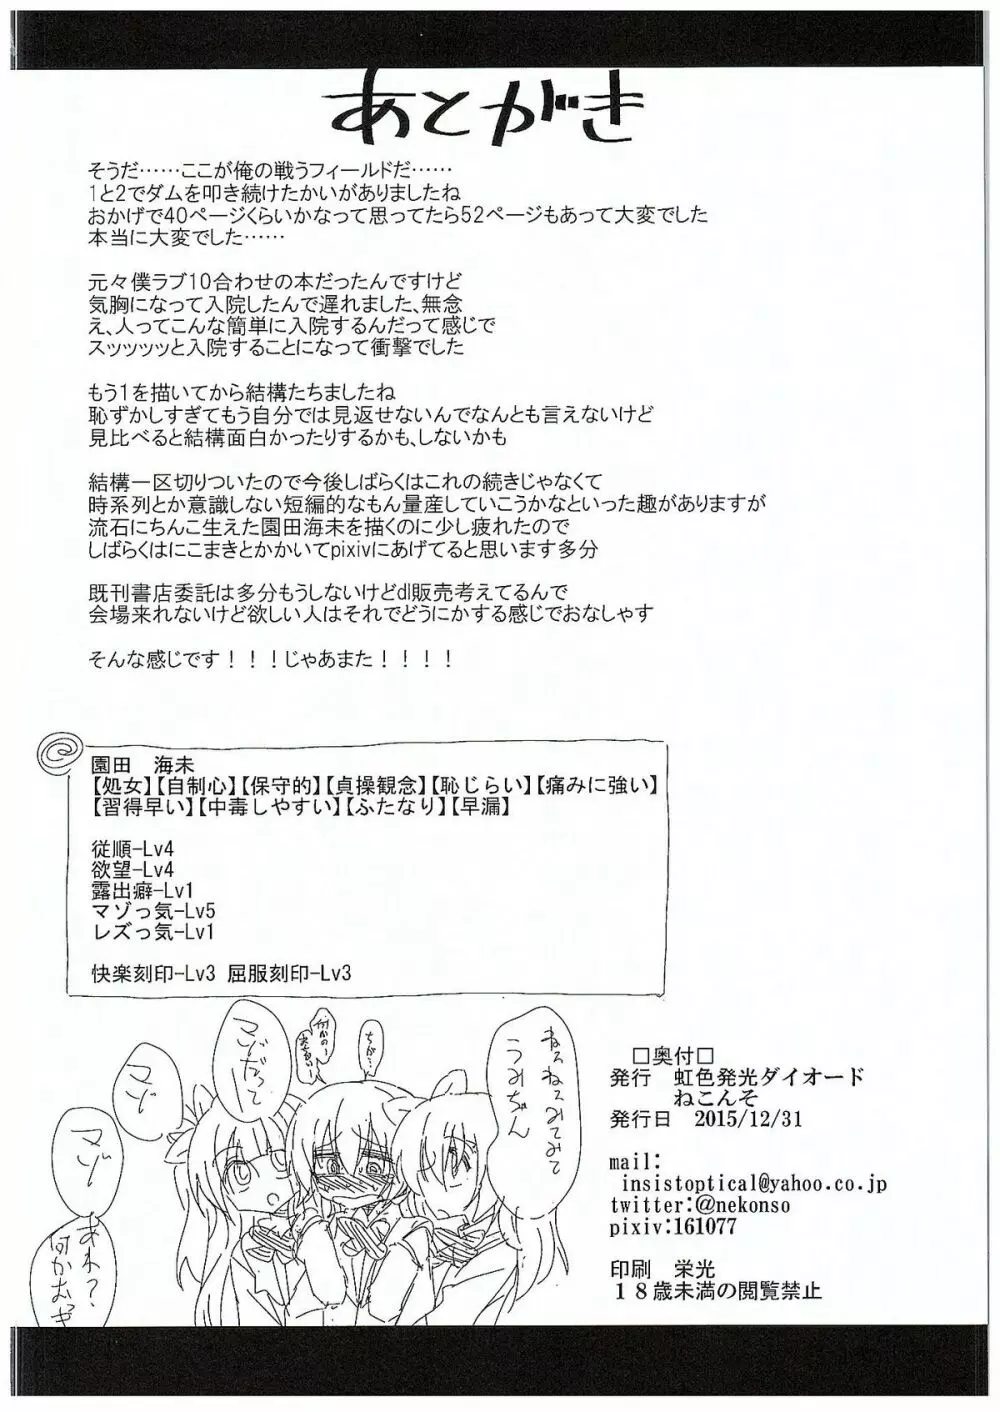 あとがき
そうだ……ここが俺の戦うフィールドだ……
1と2でダムを叩き続けたかいがありましたね
おかげで40ページくらいかなって思ってたら52ページもあって大変でした
本当に大変でした……
元々僕ラブ10合わせの本だったんですけど
気胸になって入院したんで遅れました、無念
え、人ってこんな簡単に入院するんだって感じで
スッッッッと入院することになって衝撃でした
もう1を描いてから結構たちましたね
恥ずかしすぎてもう自分では見返せないんでなんとも言えないけど
見比べると結構面白かったりするかも、しないかも
結構一区切りついたので今後しばらくはこれの続きじゃなくて
時系列とか意識しない短編的なもん量産していこうかなといった趣がありますが
流石にちんこ生えた園田海未を描くのに少し疲れたので
しばらくはにこまきとかかいてpixivにあげてると思います多分
既刊書店委託は多分もうしないけどdl販売考えてるんで
会場来れないけど欲しい人はそれでどうにかする感じでおなしゃす
そんな感じです！！！じゃあまた！！！！
園田　海未
【処女】【自制心】【保守的】【貞操観念】【恥じらい】【痛みに強い】
【習得早い】【中毒しやすい】【ふたなり】【早漏】
従順-Lv4
欲望-Lv4
露出癖-Lv1
マゾっ気-Lv5
レズっ気-Lv1
快楽刻印-Lv3 屈服刻印-Lv3
ねえねえみてみて
うみちゃん
ちが…
マゾだって
マゾ
マゾ
あれ？
□奥付□
発行　虹色発光ダイオード
ねこんそ
発行日　2015/12/31
mail:
insistoptical@yahoo.co.jp
twitter:@nekonso
pixiv:161077
印刷　栄光
１８歳未満の閲覧禁止